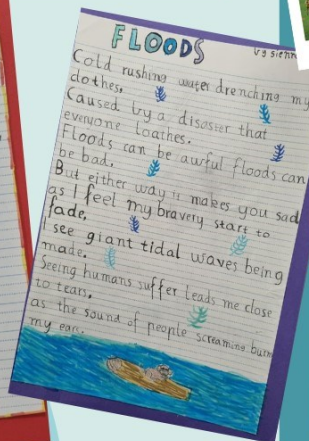 FLOODS
by sienna
Cold rushing water drenching my
clothes,
Caused by a disaster that
everyone loathes.
Floods can be awful floods can
be bad,
But either way it makes you sad
as I feel my bravery start to
fade,
I see giant tidal waves being
made.
Seeing humans suffer leads me close
to tears,
as the sound of people screaming burn
my ears.